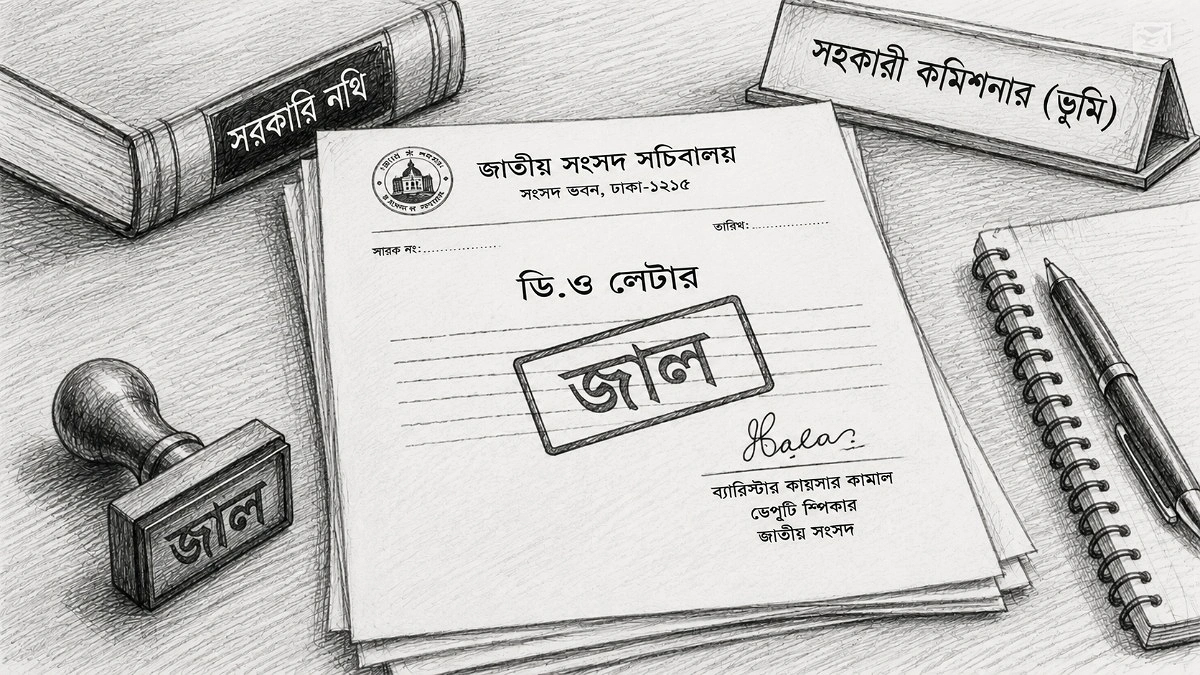 সরকারি নথি
সহকারী কমিশনার (ভূমি)
জাতীয় সংসদ সচিবালয়
সংসদ ভবন, ঢাকা-১২১৫
স্মারক নং:
তারিখ:
ডি.ও লেটার
জাল
ব্যারিস্টার কায়সার কামাল
ডেপুটি স্পিকার
জাতীয় সংসদ
জাল